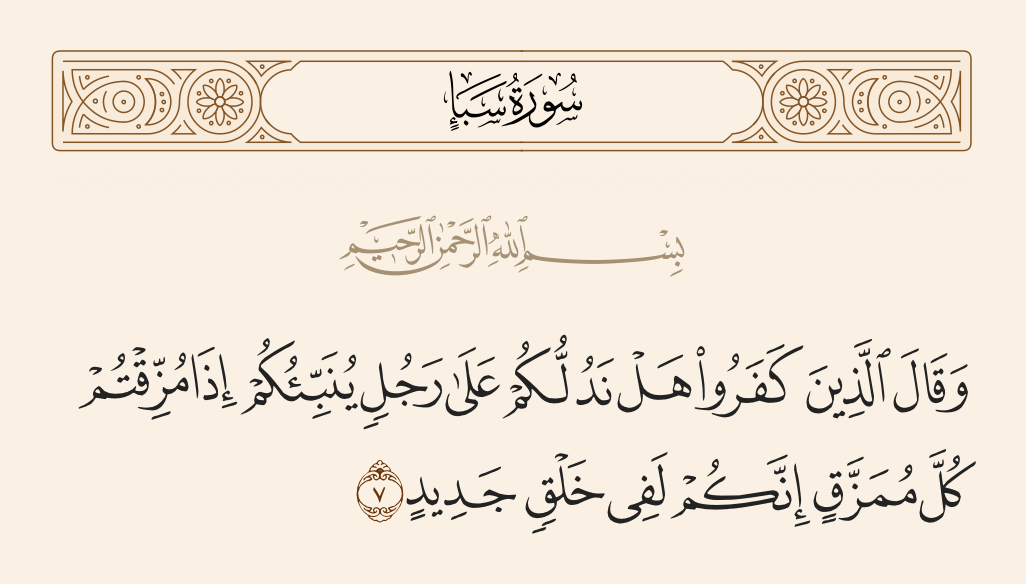 سُورَةُ سَبَإٍ
بِسْمِ ٱللَّهِ ٱلرَّحْمَٰنِ ٱلرَّحِيمِ
وَقَالَ ٱلَّذِينَ كَفَرُوا۟ هَلْ نَدُلُّكُمْ عَلَىٰ رَجُلٍ يُنَبِّئُكُمْ إِذَا مُزِّقْتُمْ
كُلَّ مُمَزَّقٍ إِنَّكُمْ لَفِى خَلْقٍ جَدِيدٍ ٧